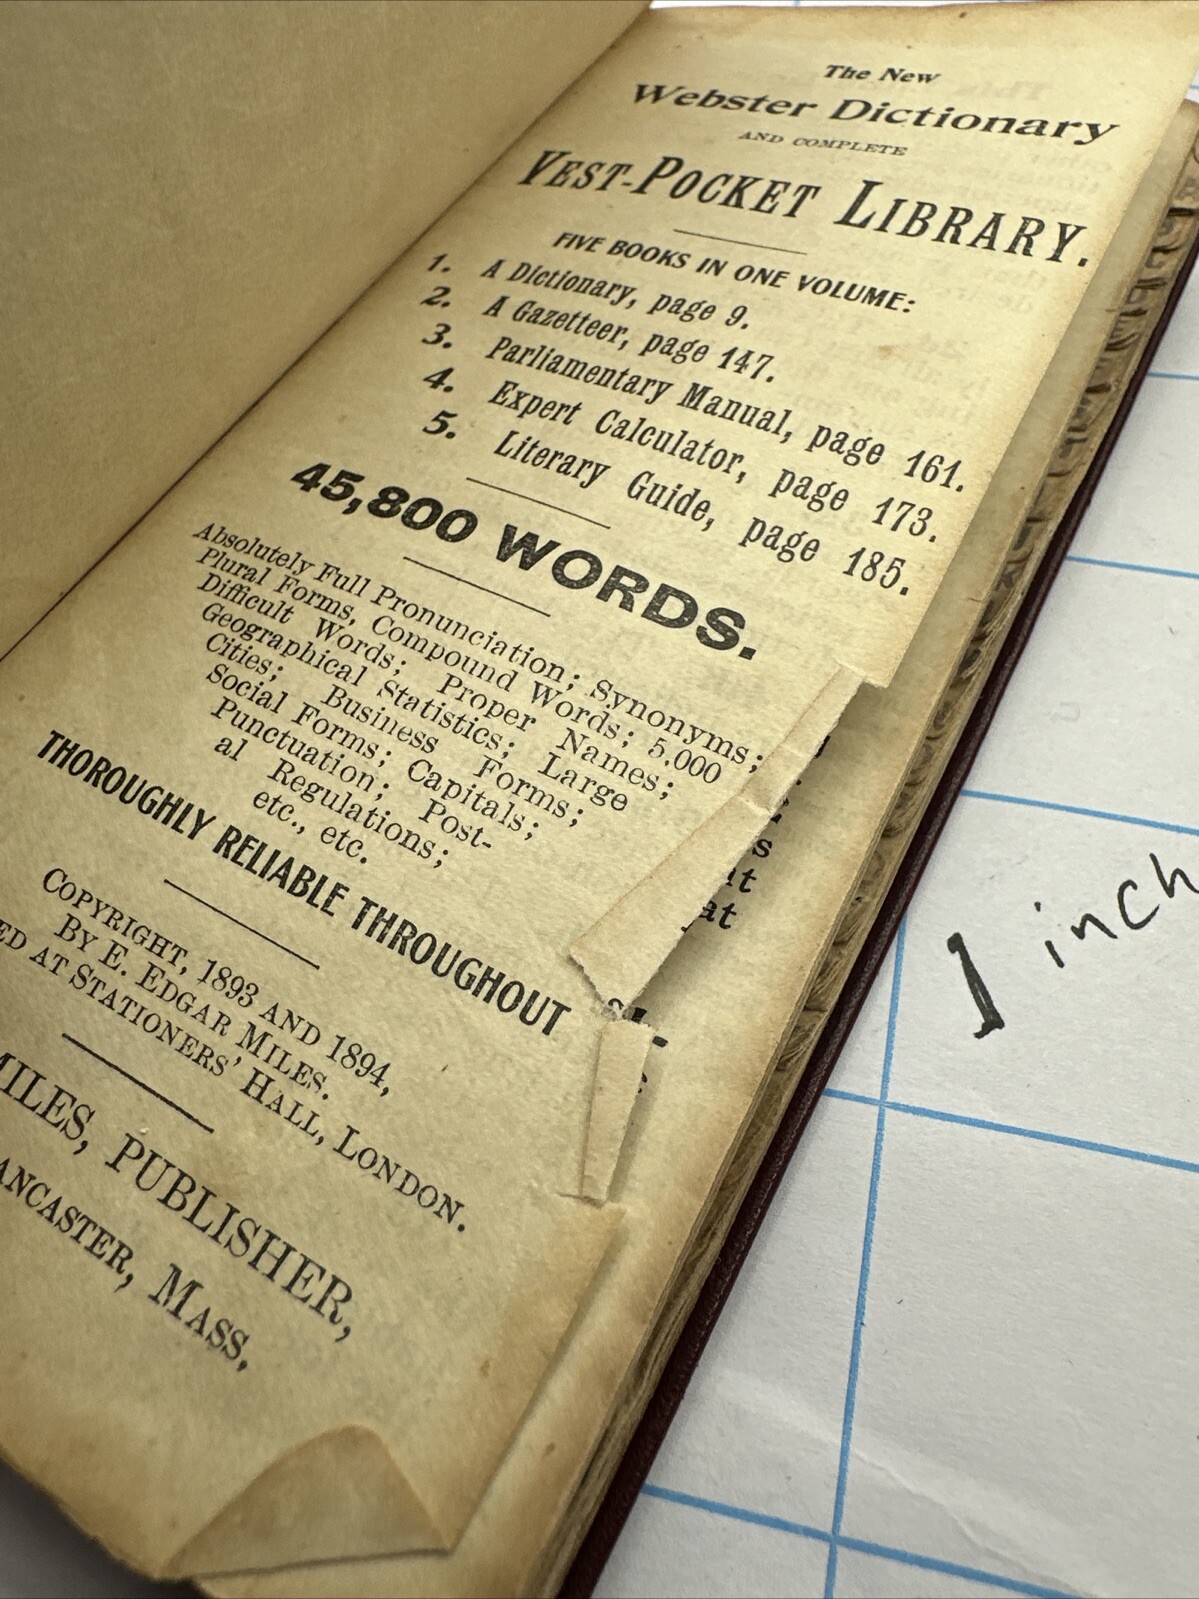 The New
Webster Dictionary
AND COMPLETE
VEST-POCKET LIBRARY.
FIVE BOOKS IN ONE VOLUME:
1. A Dictionary, page 9.
2. A Gazetteer, page 147.
3. Parliamentary Manual, page 161.
4. Expert Calculator, page 173.
5. Literary Guide, page 185.
45,800 WORDS.
Absolutely Full Pronunciation; Synonyms;
Plural Forms, Compound Words; 5,000
Difficult Words; Proper Names;
Geographical Statistics; Large
Cities; Business Forms;
Social Forms; Capitals;
Punctuation; Post-
al Regulations;
etc., etc.
THOROUGHLY RELIABLE THROUGHOUT
COPYRIGHT, 1893 AND 1894,
BY E. EDGAR MILES.
ED AT STATIONERS' HALL, LONDON.
MILES, PUBLISHER,
ANCASTER, MASS,
1 inch